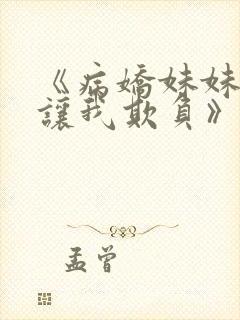 《病嬌妹妹
讓我欺負》
孟曾